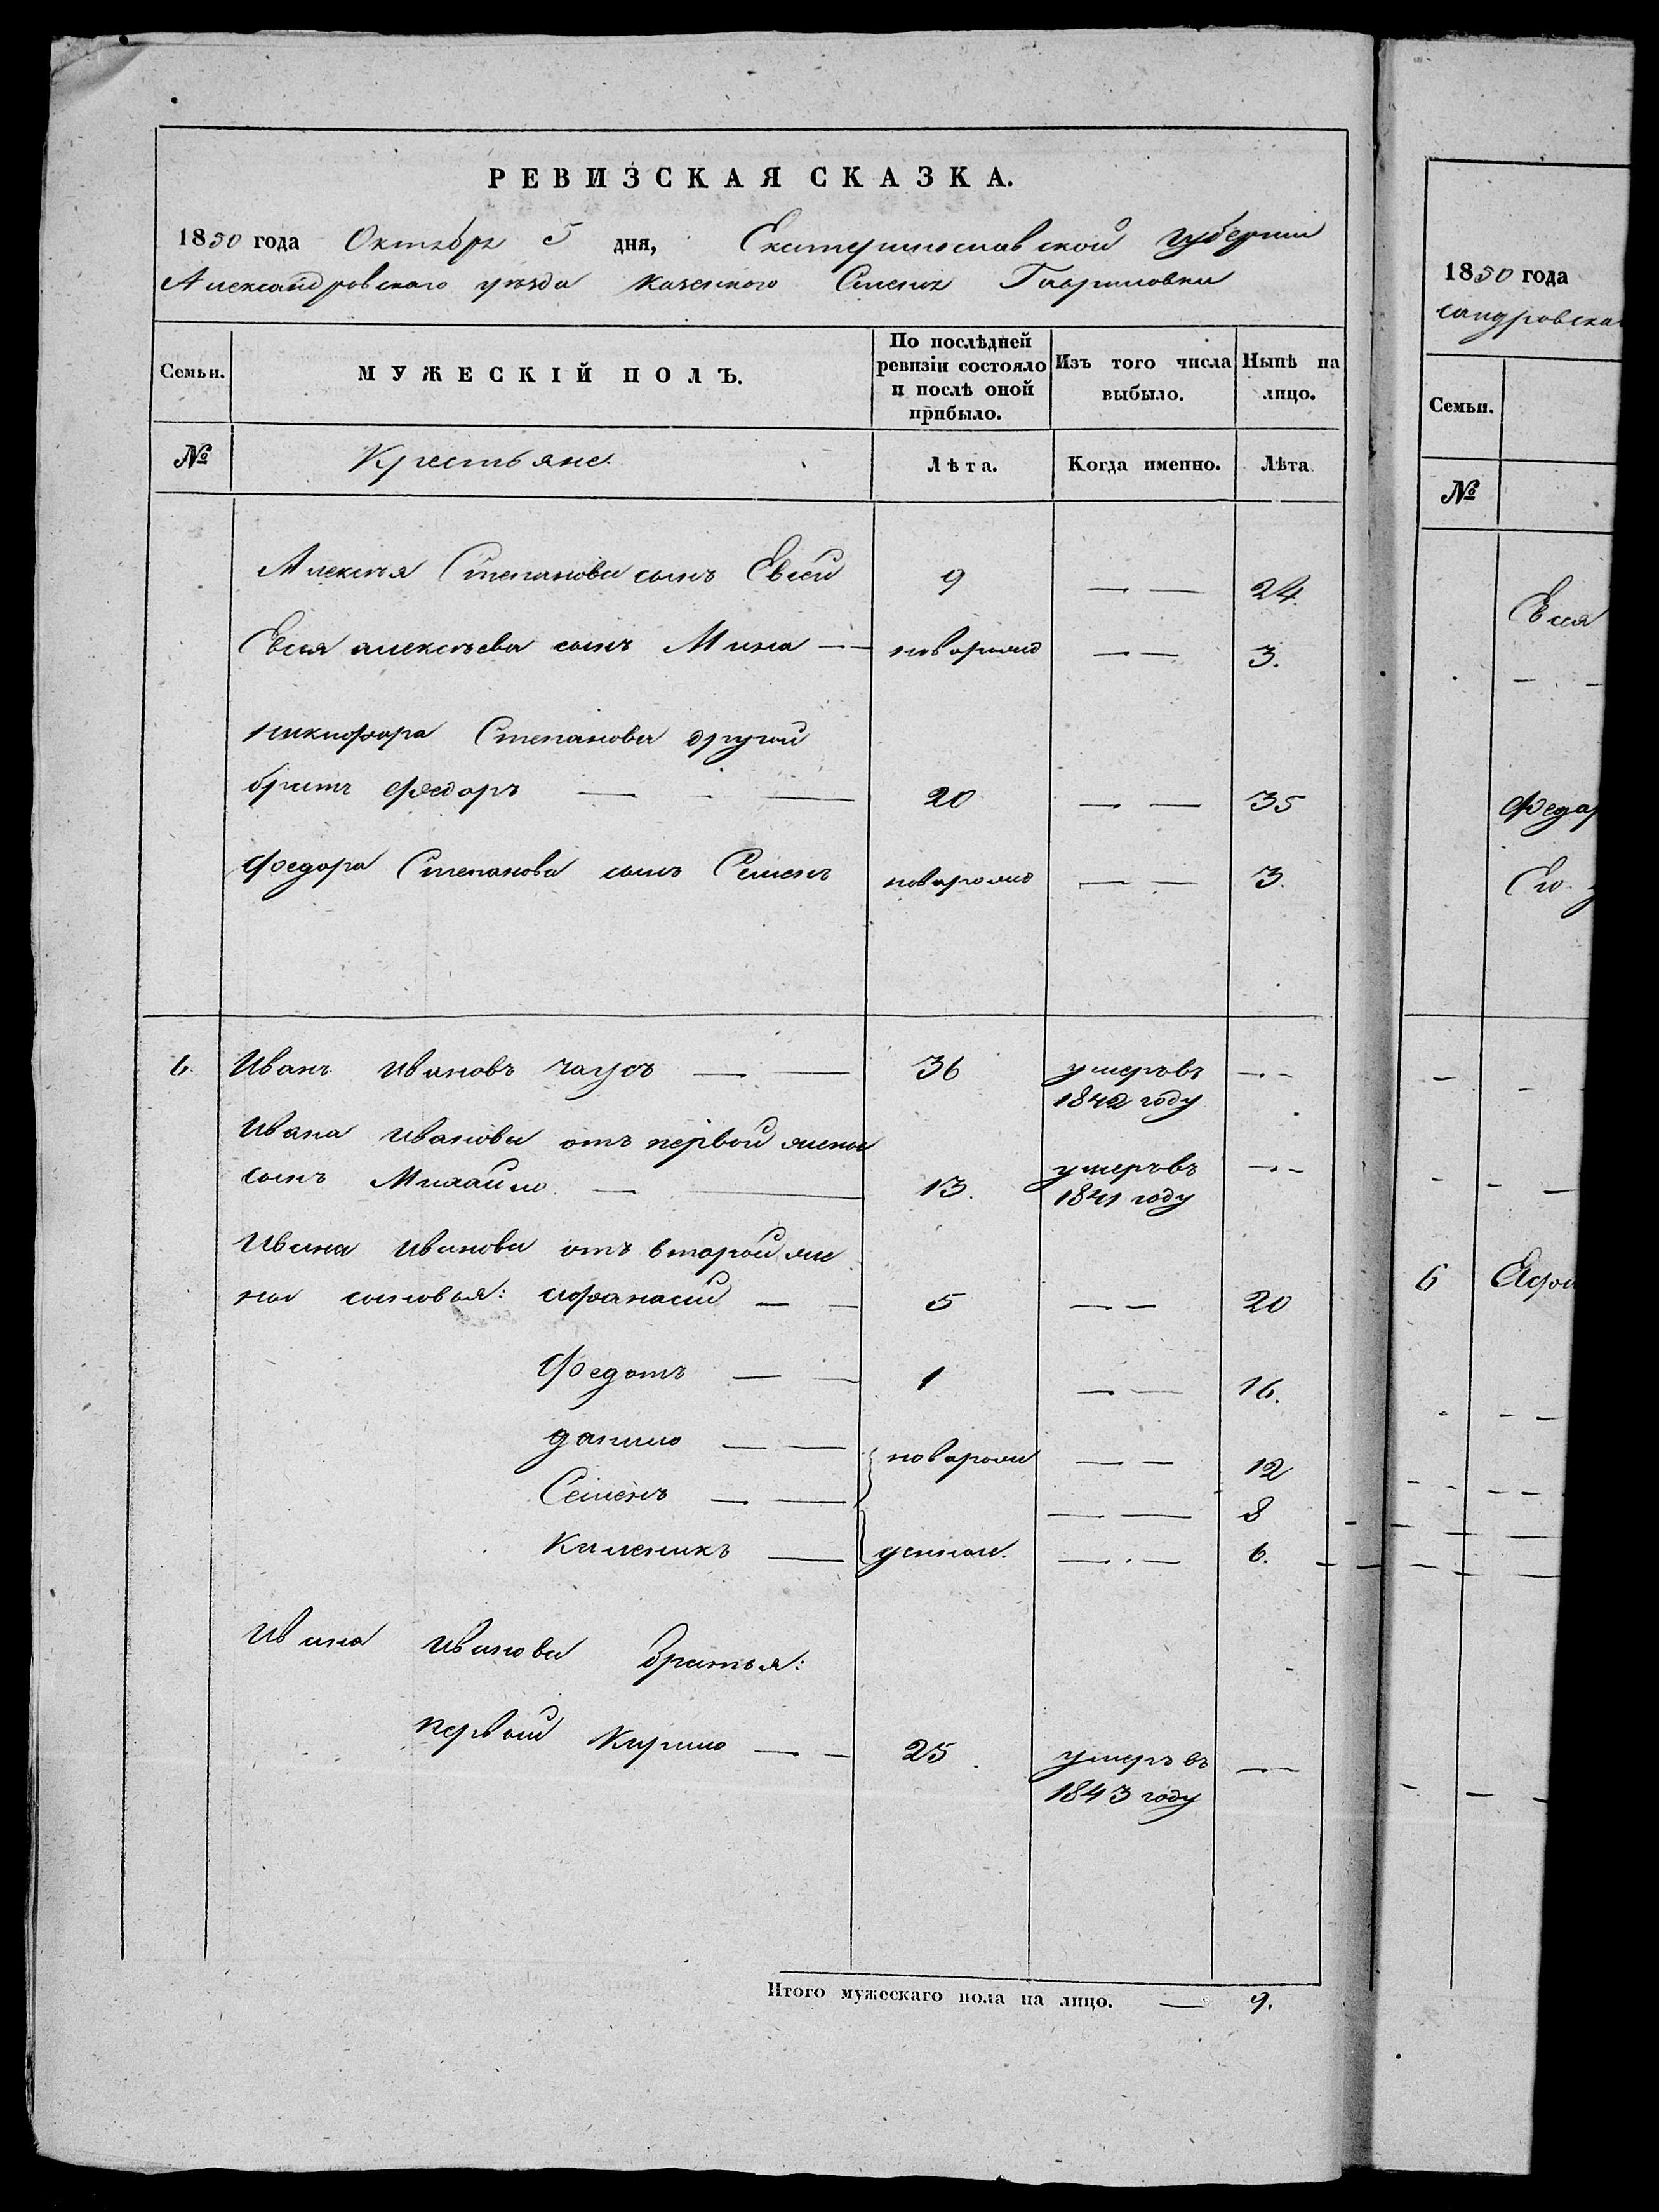 РЕВИЗСКАЯ СКАЗКА.
1850 года Октября 5 дня, Екатеринославской губернии
Александровского уезда казенного Селенія Гавриловки
Семьи.
МУЖЕСКІЙ ПОЛЪ.
По послѣдней ревизіи состояло и послѣ оной прибыло.
Изъ того числа выбыло.
Нынѣ на лицо.
№
Крестьяне.
Лѣта.
Когда именно.
Лѣта
Алексѣя Степанова сынъ Евсей 9 — — 24.
Евсея алексѣева сынъ Мина — — новорожд — — 3.
никифора Степанова другой
братъ Федоръ — - — 20 — — 35
Федора Степанова сынъ Семенъ новорожд — — 3.
6. Иванъ Ивановъ чаусъ — — 36 умеръ въ 1842 году — -
Ивана Иванова отъ первой жены
сынъ Михайло — — 13. умеръ въ 1841 году — -
Ивана Иванова отъ второй же
ны сыновья: афанасий — — 5 — — 20
Федотъ — — 1 — — 16.
данило — — новорож — — 12
Семенъ — — — — 8
Каленикъ — денные. — - — 6.
Ивана Иванова братья:
первой Кирило — — 25 умеръ въ 1843 году — —
Итого мужескаго пола на лицо. — 9.
1850 года
сандровска
Семьи.
№
Евсея
Федор
Его
6 Афон